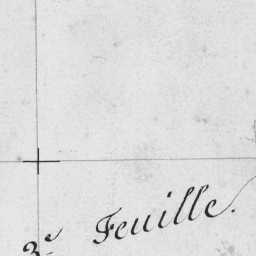 3e Feuille.